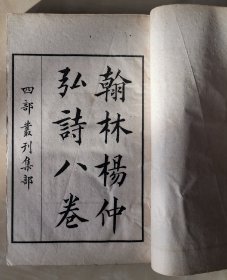 翰林楊仲
弘詩八卷
四部叢刊集部